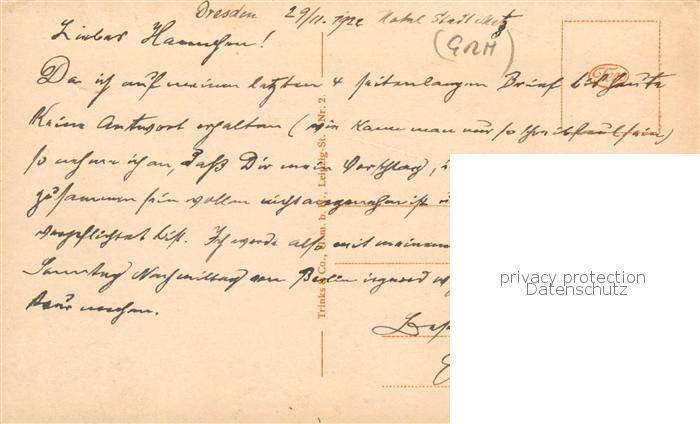 Dresden 29/11. 1922 Hotel Stadt Metz
Liebes Hannchen!
(GRH)
Da ich auf meinen letzten 4 seitenlangen Brief bis heute
keine Antwort erhalten (wie kann man nur so schreibfaul sein)
so nehme ich an, daß Dir mein Vorschlag,
zusammen sein wollen nicht angenehm ist
verpflichtet bist. Ich werde also mit meinem
Samstag Nachmittag von Berlin irgend
Tour machen.
Trinks & Co., G.m.b.H., Leipzig-St. I. Nr. 2.
privacy protection
Datenschutz